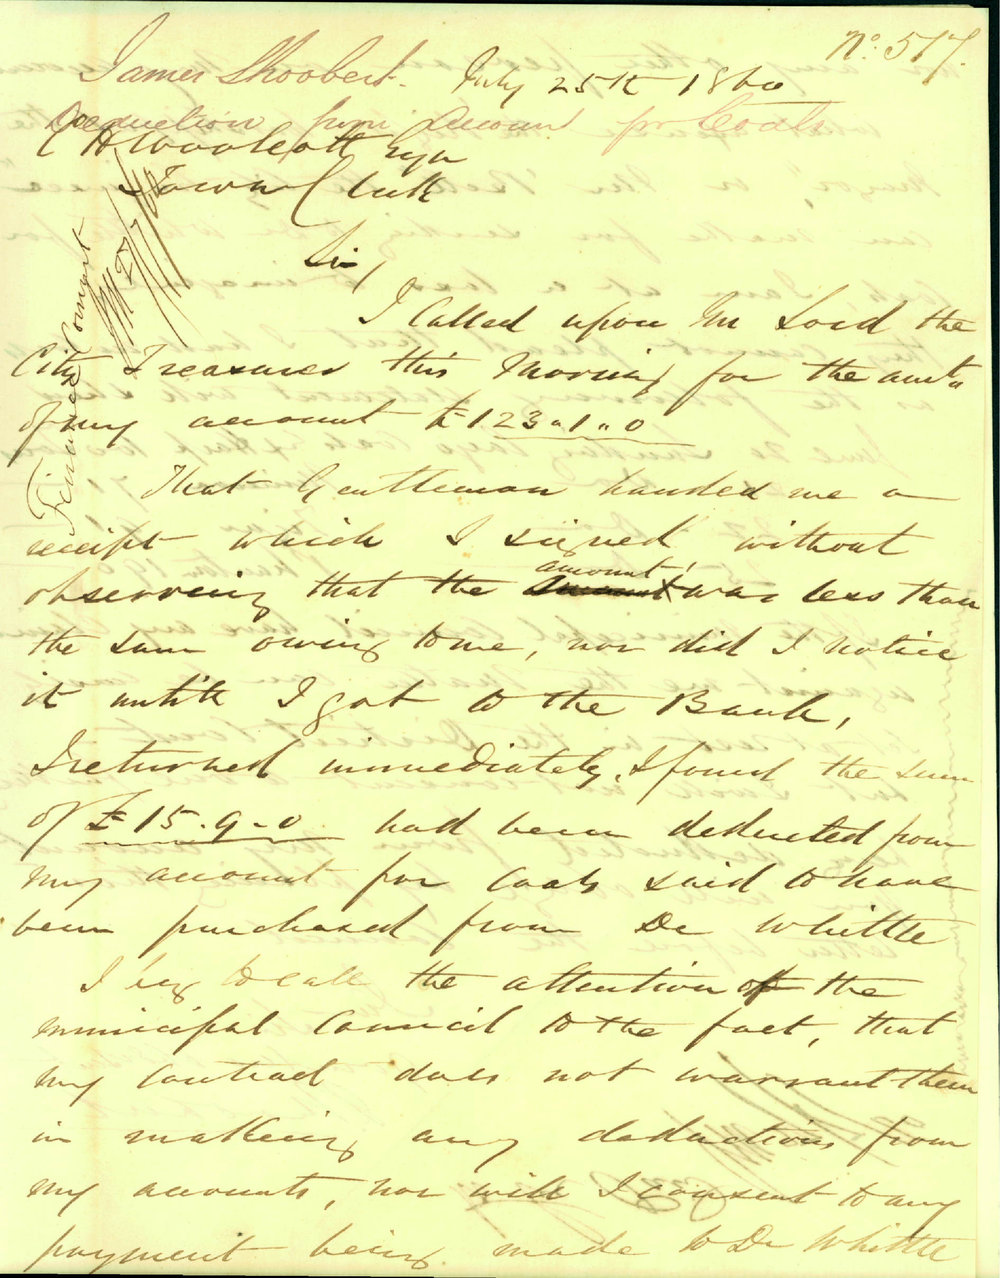 No. 517.
James Shoobert. July 25th 1860
Deduction from Account for Coals
C H Woolcott Esqr
Town Clerk
Finance Committ
27/7/60
Sir,
I Called upon Mr Lord the
City Treasurer this Morning for the amt
of my account £123"1"0
That Gentleman handed me a
receipt which I signed without
observing that the amount was less than
the sum owing to me, nor did I notice
it untill I got to the Bank,
I returned immediately, I found the sum
of £15.9.0 had been deducted from
my account for Coals said to have
been purchased from Dr Whittle
I beg to call the attention of the
Municipal Council to the fact, that
my Contract does not warrant them
in making any deductions from
my accounts, nor will I consent to any
payment being made to Dr Whittle